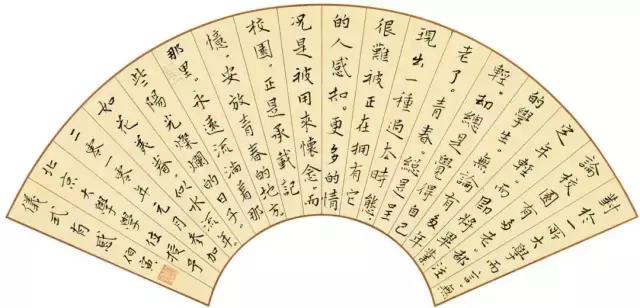 對於一所大學而言。無
論校園有多老。都注
定年輕。而即將畢業
的學生。無論有多年
輕。却總是覺得自己
老了。青春。總是呈
現出一種過去時態。
很難被正在擁有它
的人感知。更多的情
況是被用來懷念。而
校園。正是承載記
憶。安放青春的地方。
那里。永遠流淌着那
些陽光燦爛的日子。
如花美眷。似水流年。
二零一零年元月參加
北京大學學位授予
儀式有感 伯寅